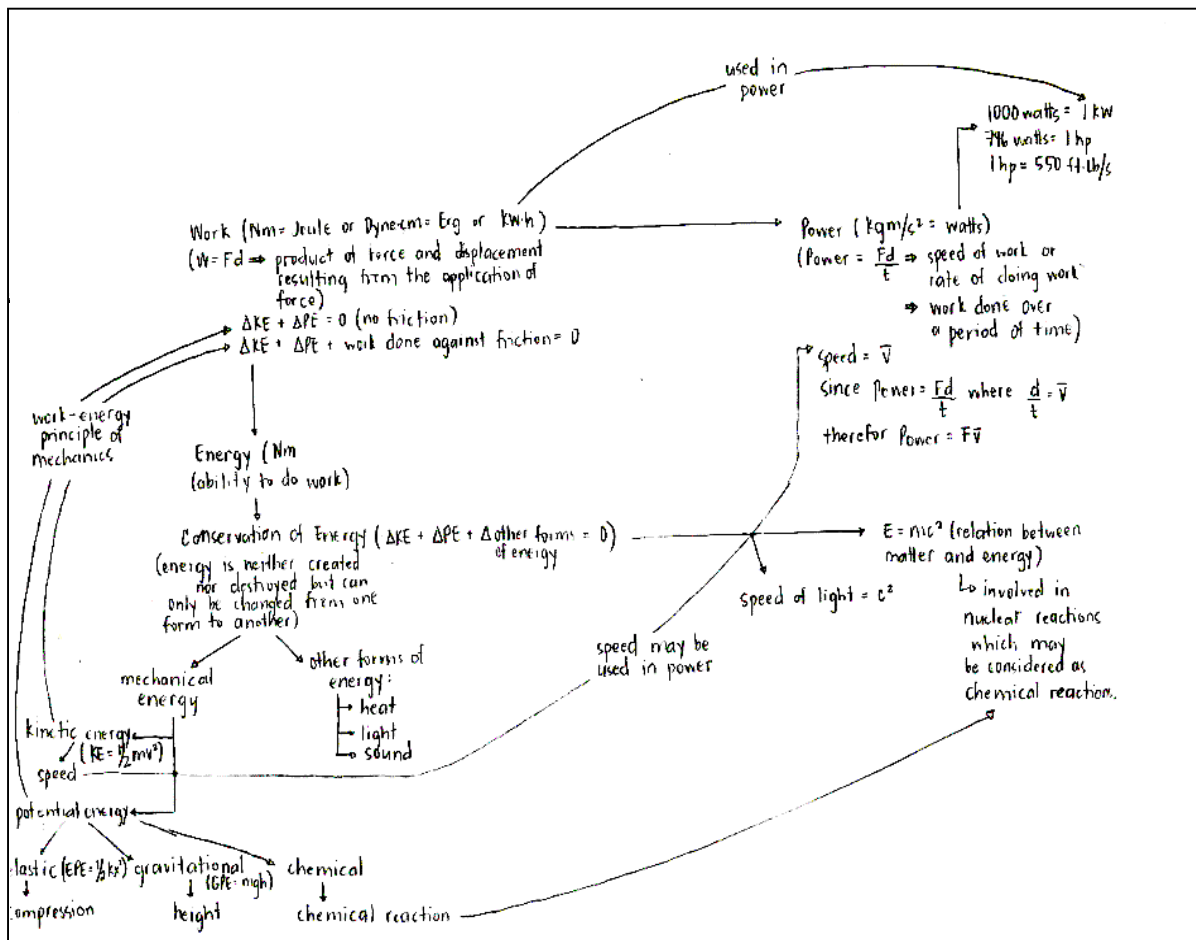 used in
power
1000 watts = 1 kW
746 watts = 1 hp
1 hp = 550 ft·lb/s
Work (Nm = Joule or Dyne·cm = Erg or kW·h)
(W = Fd ⇒ product of force and displacement
resulting from the application of
force)
ΔKE + ΔPE = 0 (no friction)
ΔKE + ΔPE + work done against friction = 0
Power (kgm/s² = watts)
(Power = Fd/t ⇒ speed of work or
rate of doing work
⇒ work done over
a period of time)
speed = v̅
since Power = Fd/t where d/t = v̅
therefor Power = Fv̅
work-energy
principle of
mechanics
Energy (Nm
(ability to do work)
Conservation of Energy (ΔKE + ΔPE + Δother forms = 0)
of energy
(energy is neither created
nor destroyed but can
only be changed from one
form to another)
E = mc² (relation between
matter and energy)
↳ involved in
nuclear reactions
which may
be considered as
chemical reaction.
speed of light = c²
speed may be
used in power
mechanical
energy
other forms of
energy:
heat
light
sound
kinetic energy
(KE = 1/2 mv²)
speed
potential energy
lastic (EPE = 1/2 kx²) gravitational chemical
(GPE = mgh)
compression height chemical reaction